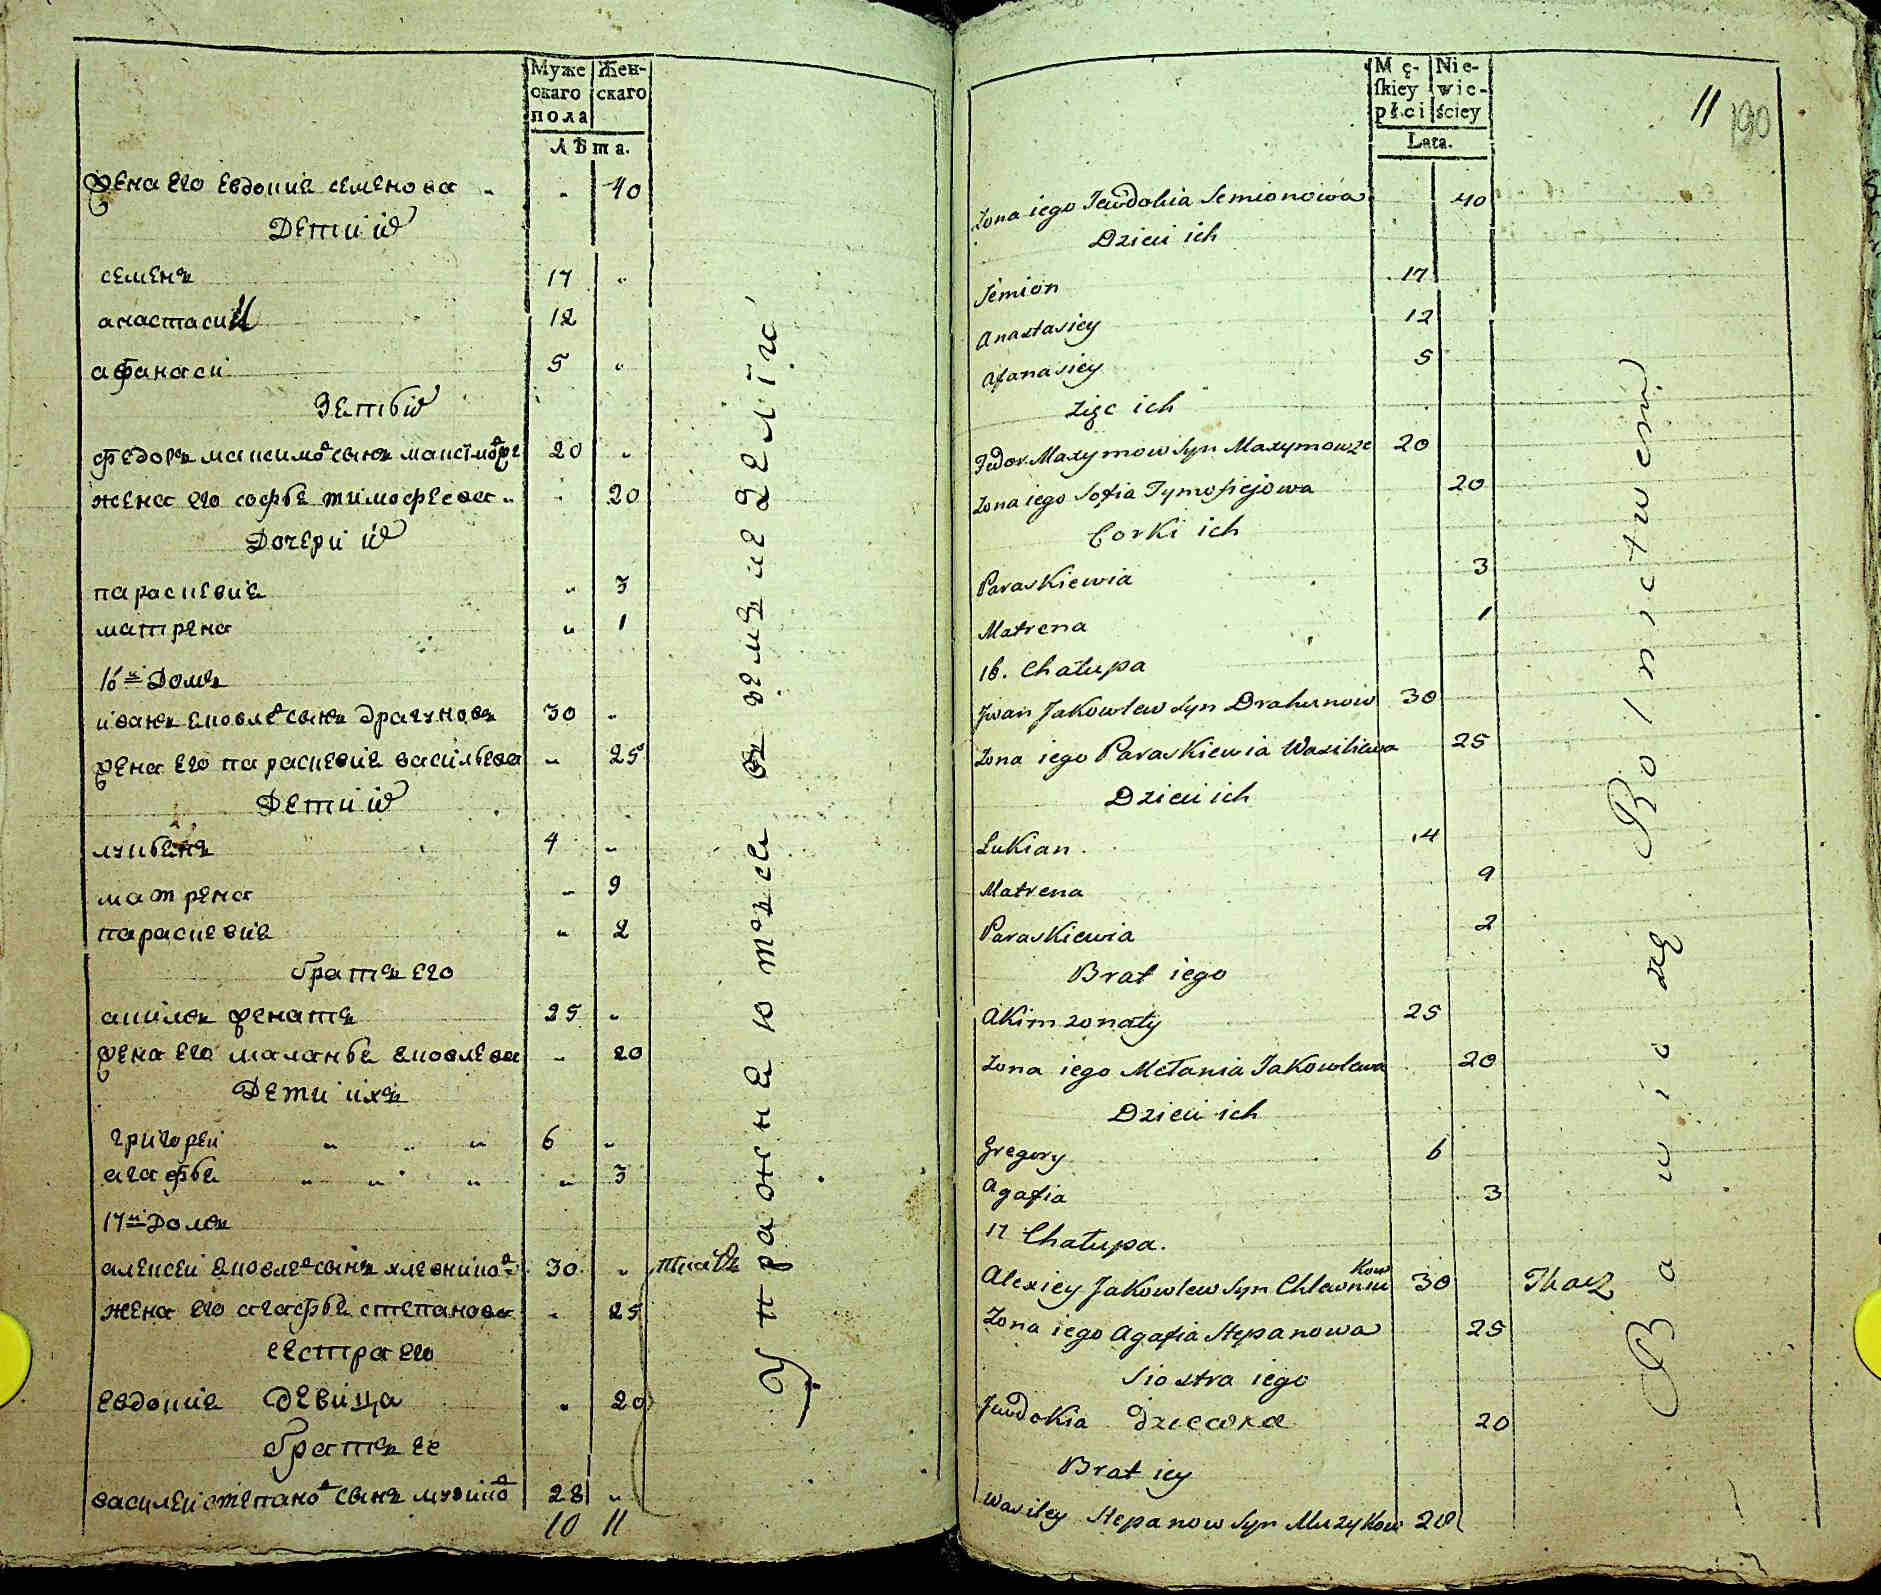 Муже Жен-
скаго скаго
пола
Лѣта.
жена его евдокие семенова 40
Дети их
семенъ 17
анастасий 12
афанаси 5
Зеть их
федоръ максимовъ сынъ 20
жена его софье тимофеева 20
Дочери их
параскевие 3
матрена 1
16й Домъ
иванъ яковлевъ сынъ драгуновъ 30
жена его параскевие васильева 25
Дети их
лукьенъ 4
матрена 9
параскевие 2
братъ его
акимъ женатъ 25
жена его маланье яковлева 20
Дети ихъ
григорей 6
агафье 3
17й Домъ
алексей яковлевъ сынъ хлевниковъ 30 ткачъ
жена его агафье степанова 25
сестра его
евдокие Девица 20
братъ ее
василей степановъ сынъ 28
10 11
Упражняютьсе въ земледелїи
Mę- Nie-
ſkiey wie-
płci ściey
Lata.
11
190
Zona iego Jewdokia Semionowa 40
Dzieci ich
Semion 17
Anastasiey 12
Afanasiey 5
Zięc ich
Fedor Maxymow Syn Maxymowze 20
Zona iego Sofia Tymofiejowa 20
Corki ich
Paraskiewia 3
Matrena 1
16. Chałupa
Jwan Jakowlew Syn Drahunow 30
Zona iego Paraskiewia Wasiliewa 25
Dzieci ich
Lukian 4
Matrena 9
Paraskiewia 2
Brat iego
Akim zonaty 25
Zona iego Mełania Jakowlewa 20
Dzieci ich
Gregory 6
Agafia 3
17 Chałupa.
Alexiey Jakowlew Syn Chlewnikow 30 Tkacz
Zona iego Agafia Stepanowa 25
Siostra iego
Jewdokia dziewka 20
Brat iey
Wasiley Stepanow Syn Muzykow 28
Bawią się Rolnictwem